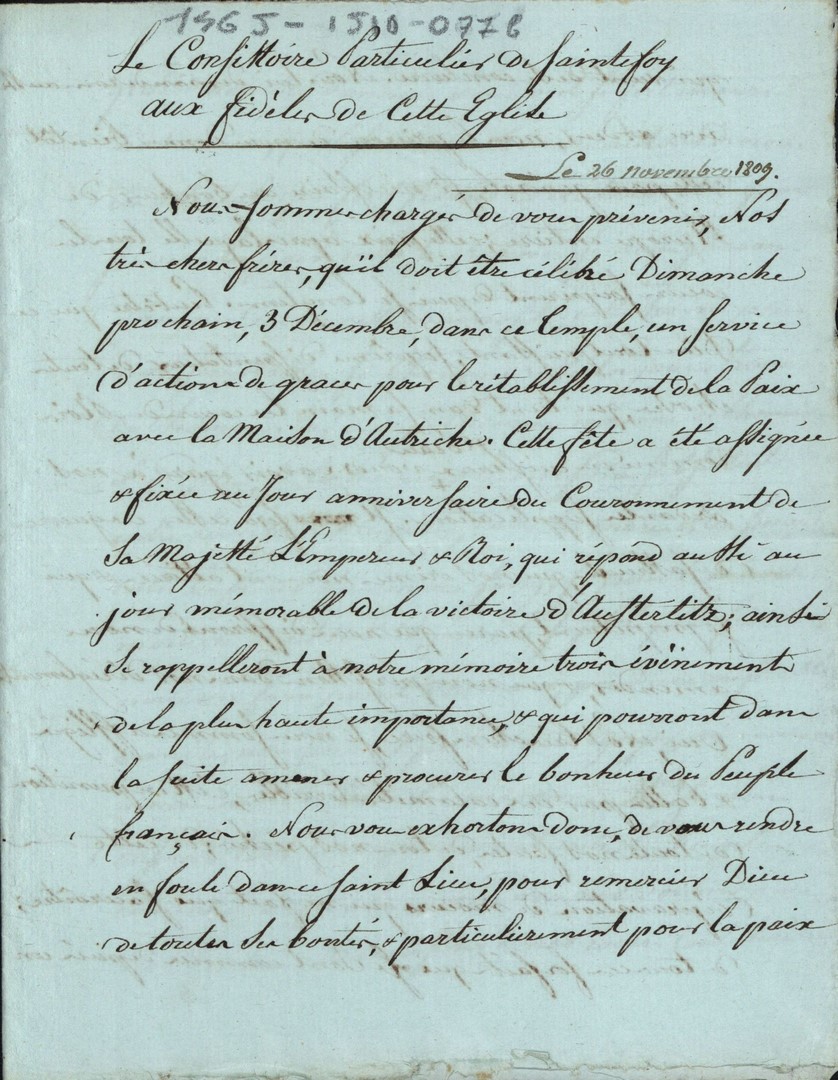 1965-1510-077B
Le Consistoire Particulier de Saintefoy
aux fidèles de Cette Eglise
Le 26 novembre 1809.
Nous sommes chargés de vous prévenir, Nos
très chers frères, qu'il doit être célébré Dimanche
prochain, 3 Décembre, dans ce Temple, un service
d'actions de graces pour le rétablissement de la Paix
avec la Maison d'Autriche. Cette fête a été assignée
& fixée au Jour anniversaire du Couronnement de
Sa Majesté L'Empereur & Roi, qui répond aussi au
jour mémorable de la victoire d'Austerlitz; ainsi
se rappelleront à notre mémoire trois évènements
de la plus haute importance, & qui pourront dans
la suite amener & procurer le bonheur du Peuple
français. Nous vous exhortons donc, de vous rendre
en foule dans ce saint Lieu, pour remercier Dieu
de toutes ses bontés, & particulièrement pour la paix